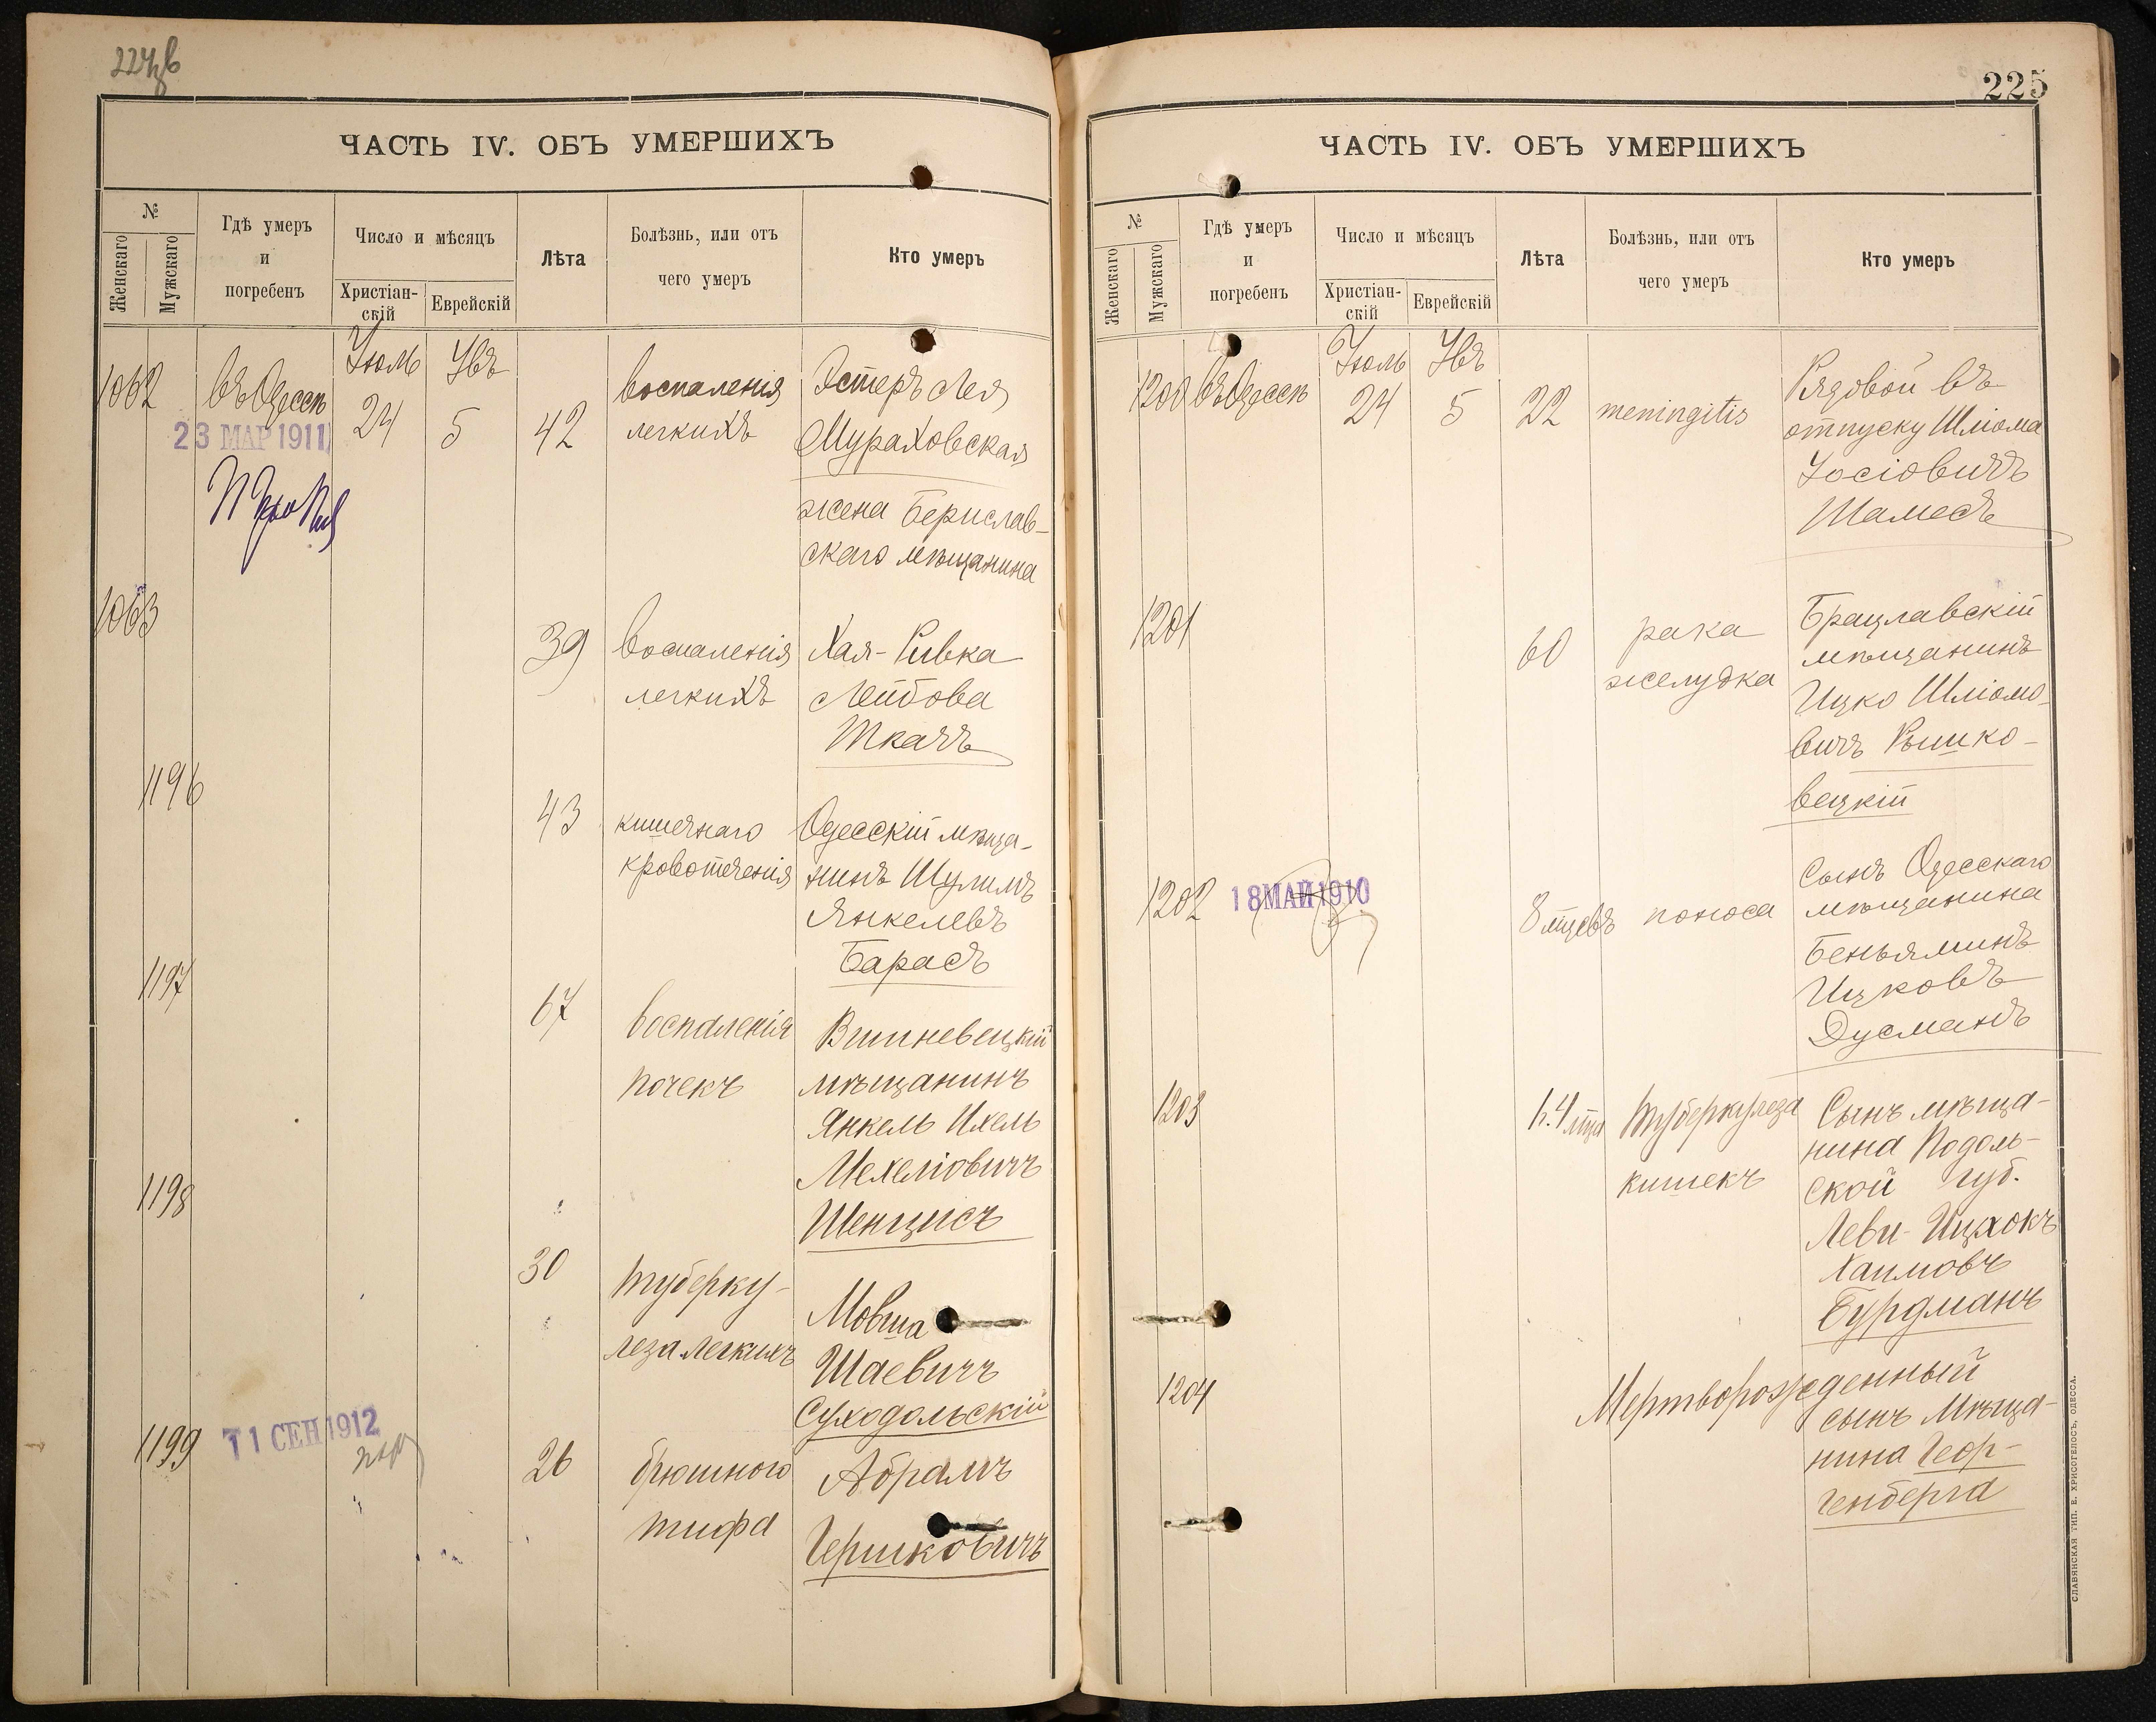 ЧАСТЬ IV. ОБЪ УМЕРШИХЪ
№
Женскаго
Мужскаго
Гдѣ умеръ
и
погребенъ
Число и мѣсяцъ
Христіан-
скій
Еврейскій
Лѣта
Болѣзнь, или отъ
чего умеръ
Кто умеръ
Іюль Абъ
1062 въ Одессѣ 24 5 42 воспаленія Эстеръ Лея
легкихъ Мураховская
23 МАР 1911
жена Берислав-
скаго мѣщанина
1063 39 воспаленія Хая-Ривка
легкихъ Лейбова
Ткачъ
1196 43 кишечнаго Одесскій мѣща-
кровотеченія нинъ Шулимъ
Янкелевъ
Барасъ
1197 67 воспаленія Вишневецкій
почекъ мѣщанинъ
Янкель Ихель
Мехеліовичъ
Шенцисъ
1198 30 туберку- Мовша
леза легкихъ Шаевичъ
Суходольскій
1199 11 СЕН 1912 26 брюшного Абрамъ
тифа Гершковичъ
225
ЧАСТЬ IV. ОБЪ УМЕРШИХЪ
№
Женскаго
Мужскаго
Гдѣ умеръ
и
погребенъ
Число и мѣсяцъ
Христіан-
скій
Еврейскій
Лѣта
Болѣзнь, или отъ
чего умеръ
Кто умеръ
Іюль Абъ
1200 въ Одессѣ 24 5 22 meningitis Рядовой въ
отпуску Шліома
Іосіовичъ
Шамесъ
1201 60 рака Брацлавскій
желудка мѣщанинъ
Ицко Шліомо-
вичъ Рышко-
вецкій
1202 18 МАЙ 1910 8 мцевъ поноса Сынъ Одесскаго
мѣщанина
Беньяминъ
Ицковъ
Дусманъ
1203 1 г. 4 мца туберкулеза Сынъ мѣща-
кишекъ нина Подоль-
ской губ.
Леви-Ицхокъ
Хаимовъ
Бурдманъ
1204 Мертворожденный
сынъ мѣща-
нина Геор-
генберга
СЛАВЯНСКАЯ ТИП. Е. ХРИСОГЕЛОСЪ, ОДЕССА.